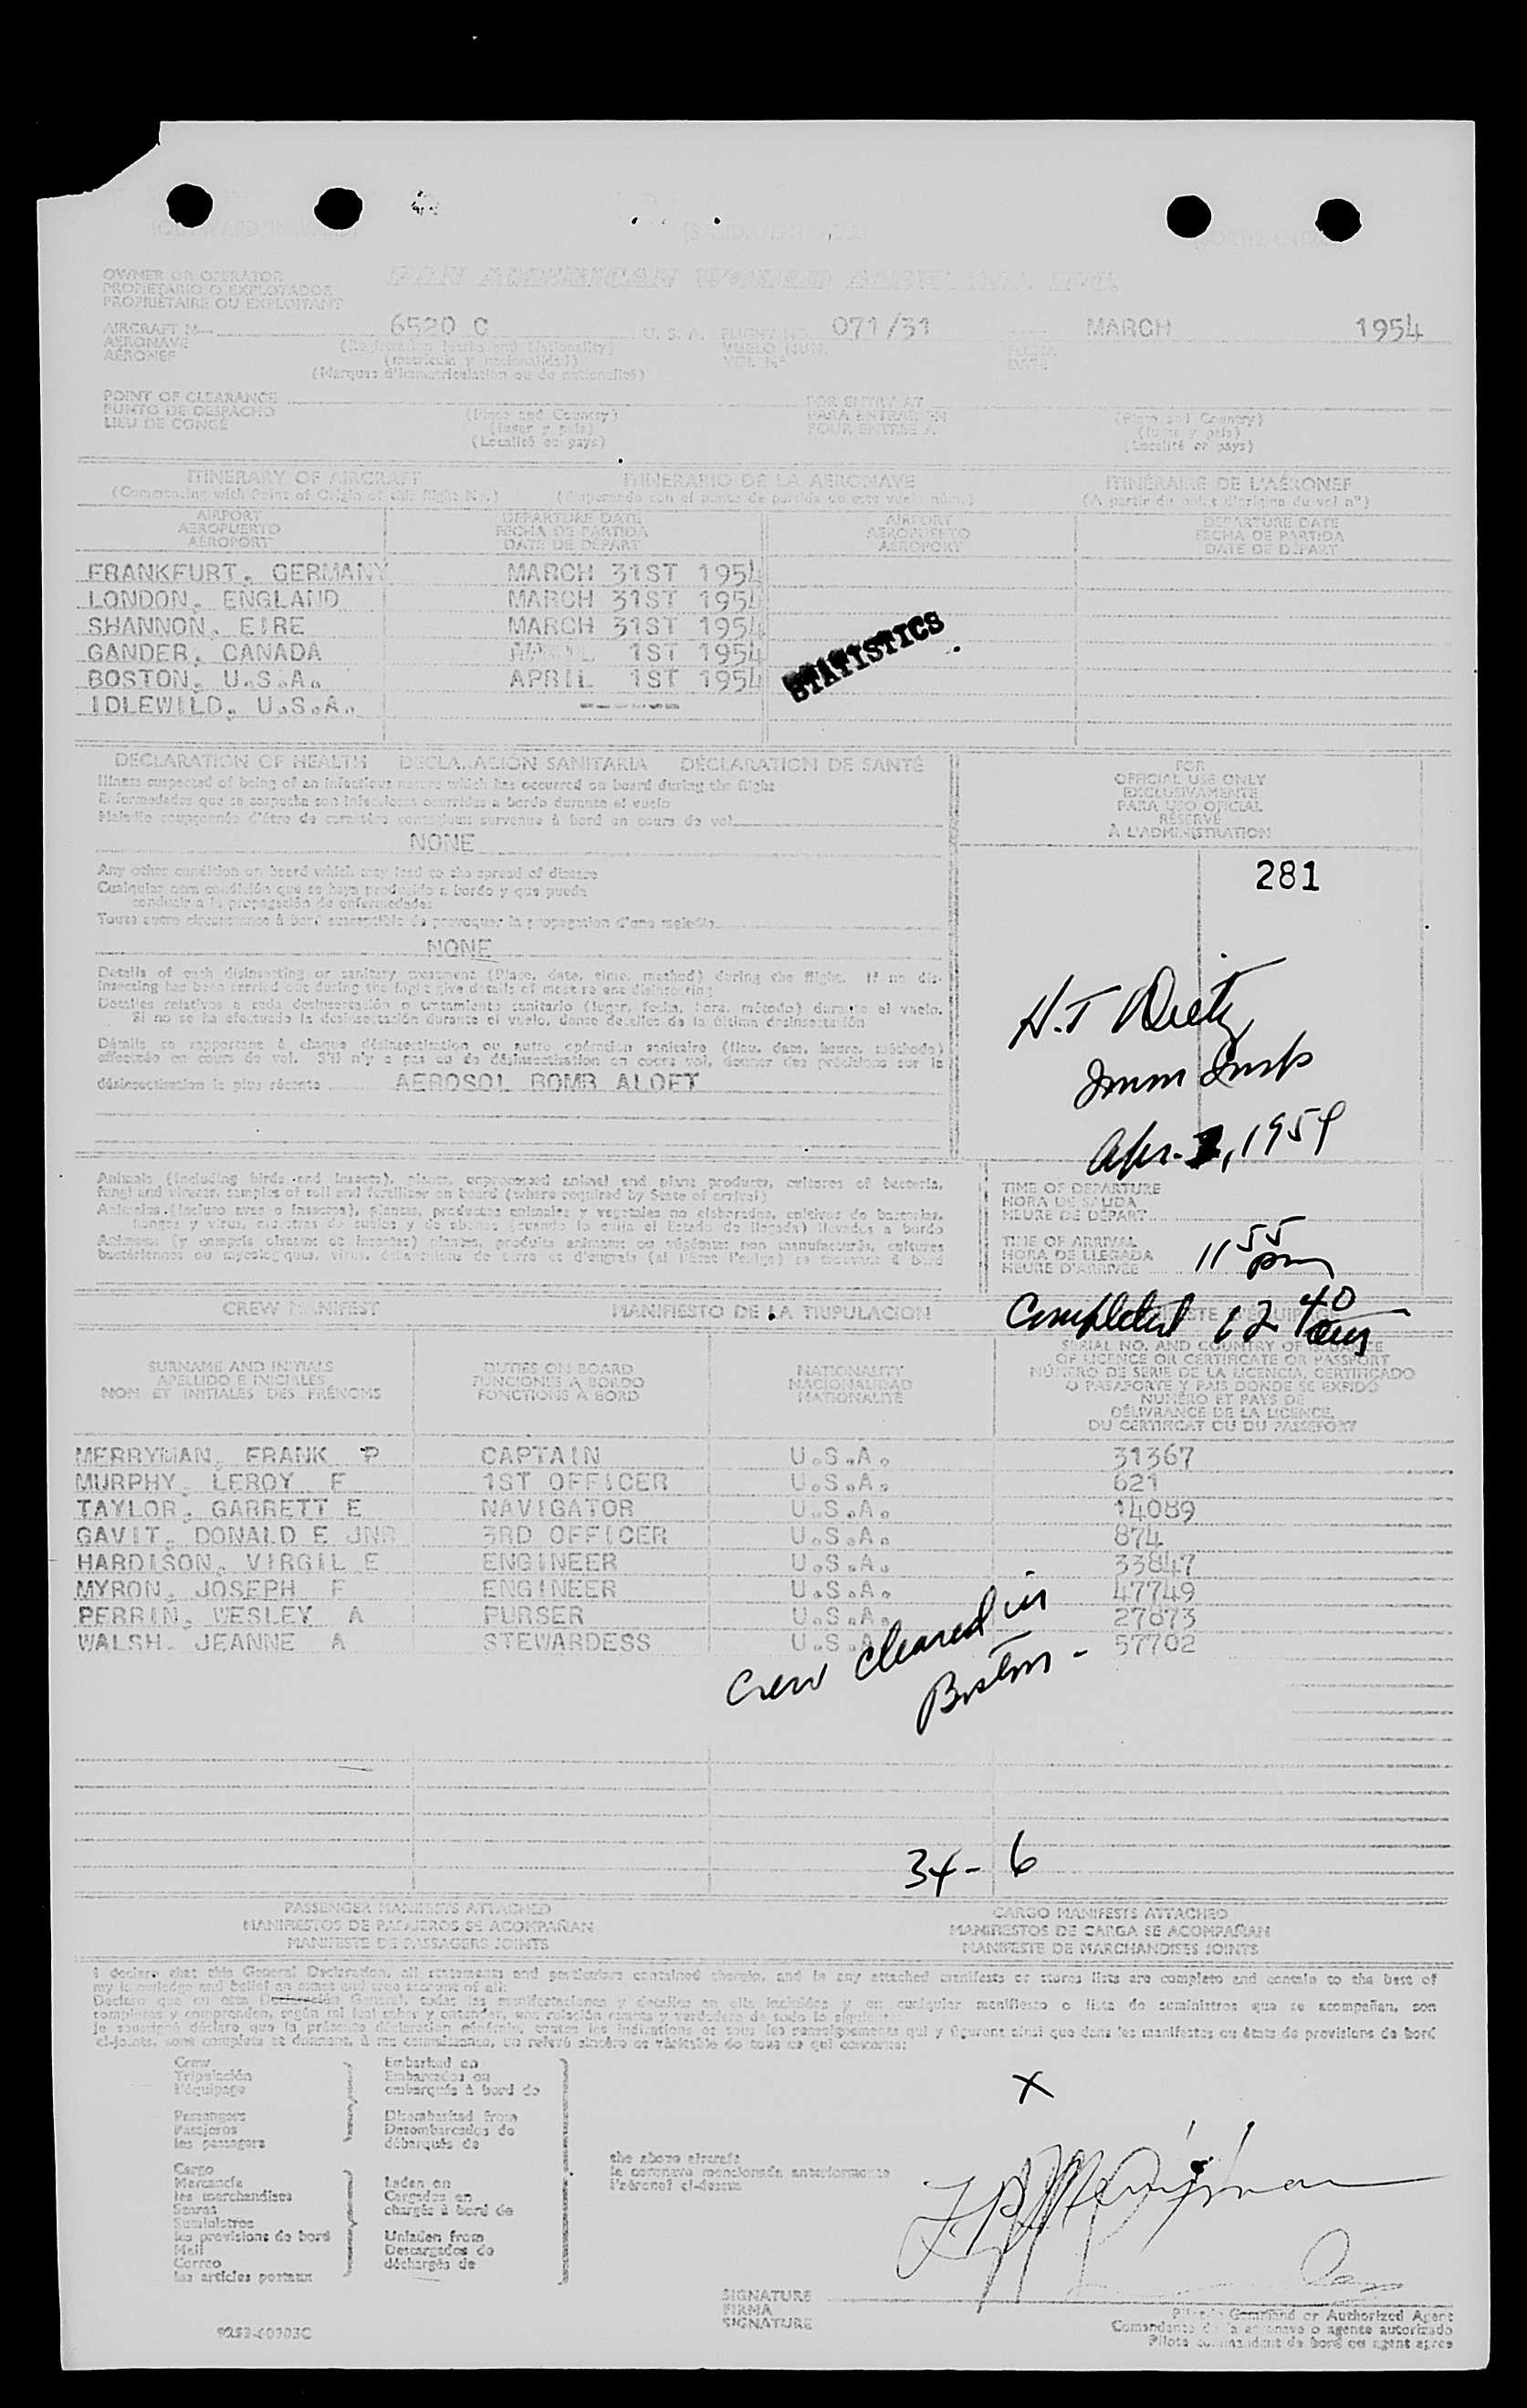 OWNER OR OPERATOR
PROPIETARIO O EXPLOTADOR
PROPRIÉTAIRE OU EXPLOITANT
PAN AMERICAN WORLD AIRWAYS, INC.
AIRCRAFT N— 6520 C U. S. A. FLIGHT NO. 071/31 MARCH 1954
AERONAVE (Registration Marks and Nationality) VUELO NUM. FECHA
AÉRONEF (matrícula y nacionalidad) VOL Nº DATE
(Marques d'immatriculation ou de nationalité)
POINT OF CLEARANCE FOR ENTRY AT
PUNTO DE DESPACHO (Place and Country) PARA ENTRAR EN (Place and Country)
LIEU DE CONGÉ (lugar y país) POUR ENTRÉE A (lugar y país)
(Localité et pays) (Localité et pays)
ITINERARY OF AIRCRAFT ITINERARIO DE LA AERONAVE ITINÉRAIRE DE L'AÉRONEF
(Commencing with Point of Origin of this flight No.) (Empezando con el punto de partida de este vuelo núm.) (A partir du point d'origine du vol nº)
AIRPORT DEPARTURE DATE AIRPORT DEPARTURE DATE
AEROPUERTO FECHA DE PARTIDA AEROPUERTO FECHA DE PARTIDA
AÉROPORT DATE DE DÉPART AÉROPORT DATE DE DÉPART
FRANKFURT, GERMANY MARCH 31ST 1954
LONDON, ENGLAND MARCH 31ST 1954
SHANNON, EIRE MARCH 31ST 1954
GANDER, CANADA 1ST 1954
BOSTON, U.S.A. APRIL 1ST 1954
IDLEWILD, U.S.A. ------
STATISTICS
DECLARATION OF HEALTH DECLARACIÓN SANITARIA DÉCLARATION DE SANTÉ
Illness suspected of being of an infectious nature which has occurred on board during the flight
Enfermedades que se sospecha son infecciosas ocurridas a bordo durante el vuelo
Maladie soupçonnée d'être de caractère contagieux survenue à bord en cours de vol
NONE
Any other condition on board which may lead to the spread of disease
Cualquier otra condición que se haya producido a bordo y que pueda
conducir a la propagación de enfermedades
Toute autre circonstance à bord susceptible de provoquer la propagation d'une maladie
NONE
Details of each disinsecting or sanitary treatment (Place, date, time, method) during the flight. If no dis-
insecting has been carried out during the flight give details of most recent disinsecting
Detalles relativos a cada desinsectación o tratamiento sanitario (lugar, fecha, hora, método) durante el vuelo.
Si no se ha efectuado la desinsectación durante el vuelo, dense detalles de la última desinsectación
Détails se rapportant à chaque désinsectisation ou autre opération sanitaire (lieu, date, heure, méthode)
effectuée en cours de vol. S'il n'y a pas eu de désinsectisation en cours vol, donner des précisions sur la
désinsectisation la plus récente AEROSOL BOMB ALOFT
FOR
OFFICIAL USE ONLY
EXCLUSIVAMENTE
PARA USO OFICIAL
RÉSERVÉ
À L'ADMINISTRATION
281
H.T Dietz
Imm Insp
Apr. 2, 1954
Animals (including birds and insects), plants, unprocessed animal and plant products, cultures of bacteria,
fungi and viruses, samples of soil and fertilizer on board (where required by State of arrival)
Animales (incluso aves o insectos), plantas, productos animales y vegetales no elaborados, cultivos de bacterias,
hongos y virus, muestras de suelos y de abonos (cuando lo exija el Estado de llegada) llevados a bordo
Animaux (y compris oiseaux et insectes) plantes, produits animaux ou végétaux non manufacturés, cultures
bactériennes ou mycologiques, virus, échantillons de terre et d'engrais (si l'État l'exige) se trouvant à bord
TIME OF DEPARTURE
HORA DE SALIDA
HEURE DE DÉPART
TIME OF ARRIVAL
HORA DE LLEGADA
HEURE D'ARRIVÉE
11 55 pm
Completed 12 40 am
CREW MANIFEST MANIFIESTO DE LA TRIPULACION
SURNAME AND INITIALS DUTIES ON BOARD NATIONALITY SERIAL NO. AND COUNTRY OF ISSUANCE
APELLIDO E INICIALES FUNCIONES A BORDO NACIONALIDAD OF LICENCE OR CERTIFICATE OR PASSPORT
NOM ET INITIALES DES PRÉNOMS FONCTIONS À BORD NATIONALITÉ NÚMERO DE SERIE DE LA LICENCIA, CERTIFICADO
O PASAPORTE Y PAIS DONDE SE EXPIDO
NUMÉRO ET PAYS DE
DÉLIVRANCE DE LA LICENCE,
DU CERTIFICAT OU DU PASSEPORT
MERRYMAN, FRANK P CAPTAIN U.S.A. 31367
MURPHY, LEROY F 1ST OFFICER U.S.A. 621
TAYLOR, GARRETT E NAVIGATOR U.S.A. 14089
GAVIT, DONALD E JNR 3RD OFFICER U.S.A. 874
HARDISON, VIRGIL E ENGINEER U.S.A. 33847
MYRON, JOSEPH F ENGINEER U.S.A. 47749
PERRIN, WESLEY A PURSER U.S.A. 27873
WALSH, JEANNE A STEWARDESS U.S.A. 57702
Crew cleared in
Boston -
34- 6
PASSENGER MANIFESTS ATTACHED CARGO MANIFESTS ATTACHED
MANIFIESTOS DE PASAJEROS SE ACOMPAÑAN MANIFIESTOS DE CARGA SE ACOMPAÑAN
MANIFESTE DE PASSAGERS JOINTS MANIFESTE DE MARCHANDISES JOINTS
I declare that this General Declaration, all statements and particulars contained therein, and in any attached manifests or stores lists are complete and contain to the best of
my knowledge and belief an exact and true account of all:
Declaro que en esta Declaración General, todas las manifestaciones y detalles en ella incluidos y en cualquier manifiesto o lista de suministros que se acompañan, son
completos y comprenden, según mi leal saber y entender, una relación exacta y verdadera de todo lo siguiente:
Je soussigné déclare que la présente déclaration générale, toutes les indications et tous les renseignements qui y figurent ainsi que dans les manifestes ou états de provisions de bord
ci-joints, sont complets et donnent, à ma connaissance, un relevé sincère et véritable de tous ce qui concerne:
Crew Embarked on
Tripulación Embarcados en
l'équipage embarqués à bord de
Passengers Disembarked from
Pasajeros Desembarcados de
les passagers débarqués de
Cargo
Mercancía Laden on
les marchandises Cargados en
Stores chargés à bord de
Suministros
les provisions de bord Unladen from
Mail Descargados de
Correo déchargés de
les articles postaux
the above aircraft
la aeronave mencionada anteriormente
l'aéronef ci-dessus
X
F.P. Merryman
SIGNATURE
FIRMA
SIGNATURE
Pilot in Command or Authorized Agent
Comandante de la aeronave o agente autorizado
Pilote commandant de bord ou agent agréé